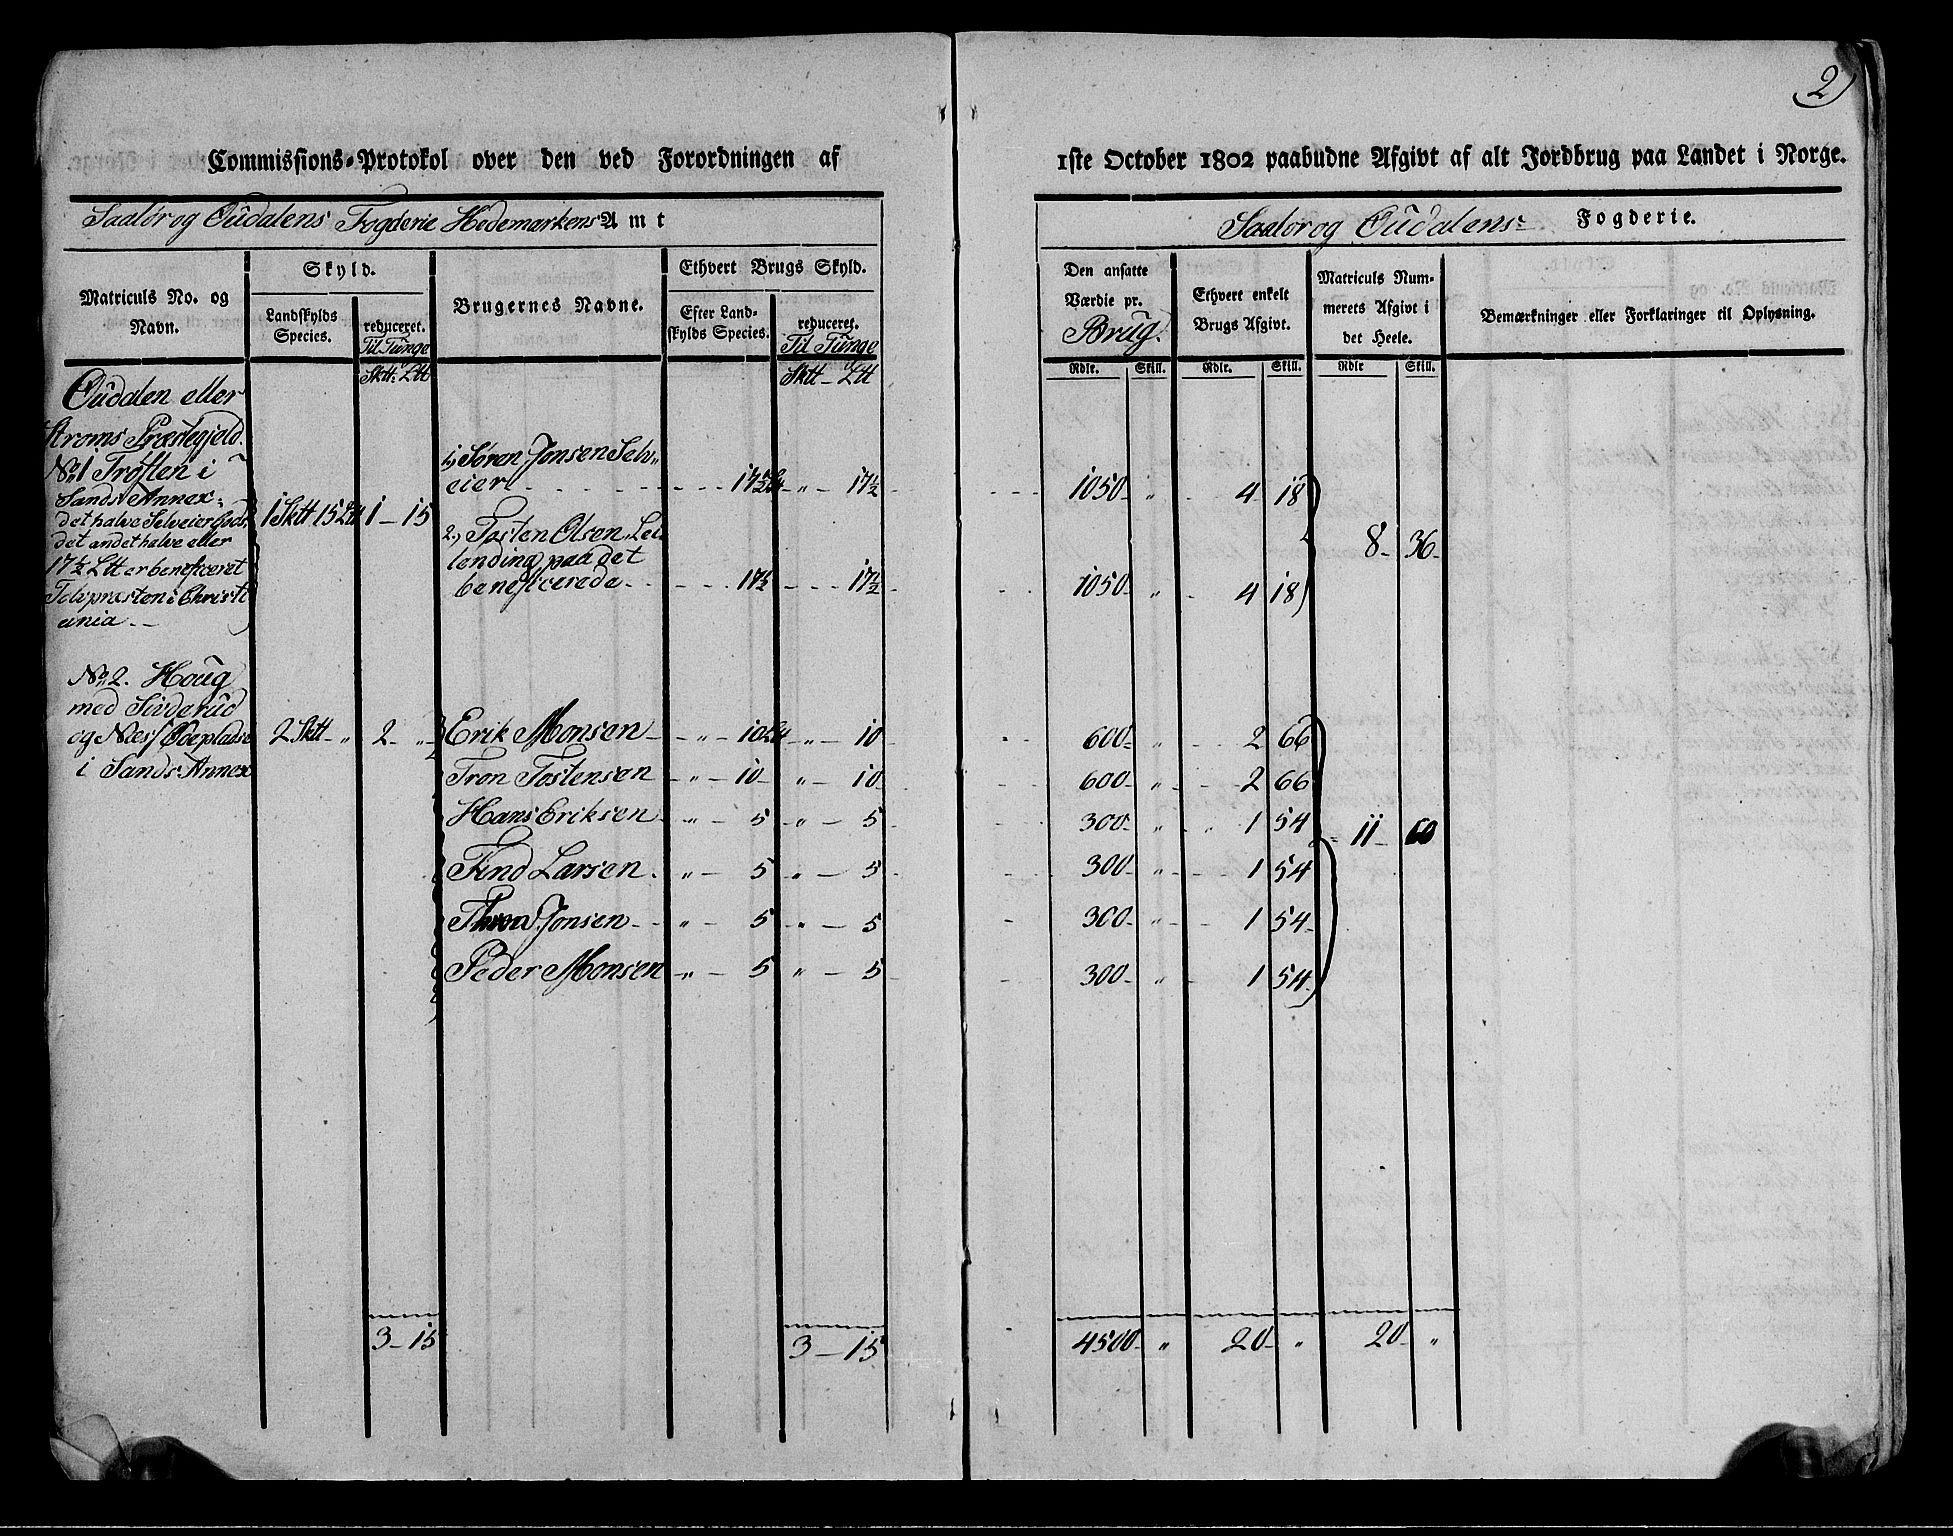 2)
Commissions-Protokol over den ved Forordningen af 1ste October 1802 paabudne Afgivt af alt Jordbrug paa Landet i Norge.
Saalør og Oudalens Fogderie Hedemarkens Amt
Saalør og Oudalens Fogderie.
Matriculs No. og Navn.
Skyld.
Landskylds Species.
reduceret. Til Tunge
Sktt: Ltt
Brugernes Navne.
Ethvert Brugs Skyld.
Efter Landskylds Species.
reduceret. Til Tunge
Sktt - Ltt
Den ansatte Værdie pr. Brug.
Rdlr. Skill.
Ethvert enkelt Brugs Afgivt.
Rdlr. Skill.
Matriculs Nummerets Afgivt i det Heele.
Rdlr Skill.
Bemærkninger eller Forklaringer til Oplysning.
Oudalen eller
Strøms Præstegjeld.
No. 1 Trøften i
Sands Annex
det halve Selveier Gods,
det andet halve eller
17½ Ltt er beneficeret
Præsten i Christi
ania --
1 Sktt 15 Ltt 1 - 15
1, Søren Jonsen Selv„
eier 17½ Ltt - „ - 17½ 1050 - „ 4 18
8 - 36 -
2, Tosten Olsen Lei
lending paa det
beneficerede - 17½ - 17½ 1050 - „ 4 18
No. 2. Houg
med Sinderud
og Næs Ødeplads
i Sands Annex
2 Sktt - „ 2 - „
Erik Monsen - „ - 10 Ltt - „ - 10 600 - „ 2 66
Tron Tostensen - „ - 10 - „ - 10 600 - „ 2 66
Hans Eriksen - „ - 5 - „ - 5 300 - „ 1 54
11 - 60
Find Larsen - „ - 5 - „ - 5 300 - „ 1 54
Thron Jonsen - „ - 5 - „ - 5 300 - „ 1 54
Peder Monsen - „ - 5 - „ - 5 300 - „ 1 54
3 - 15 3 - 15 4500 - „ 20 - „ 20 - „